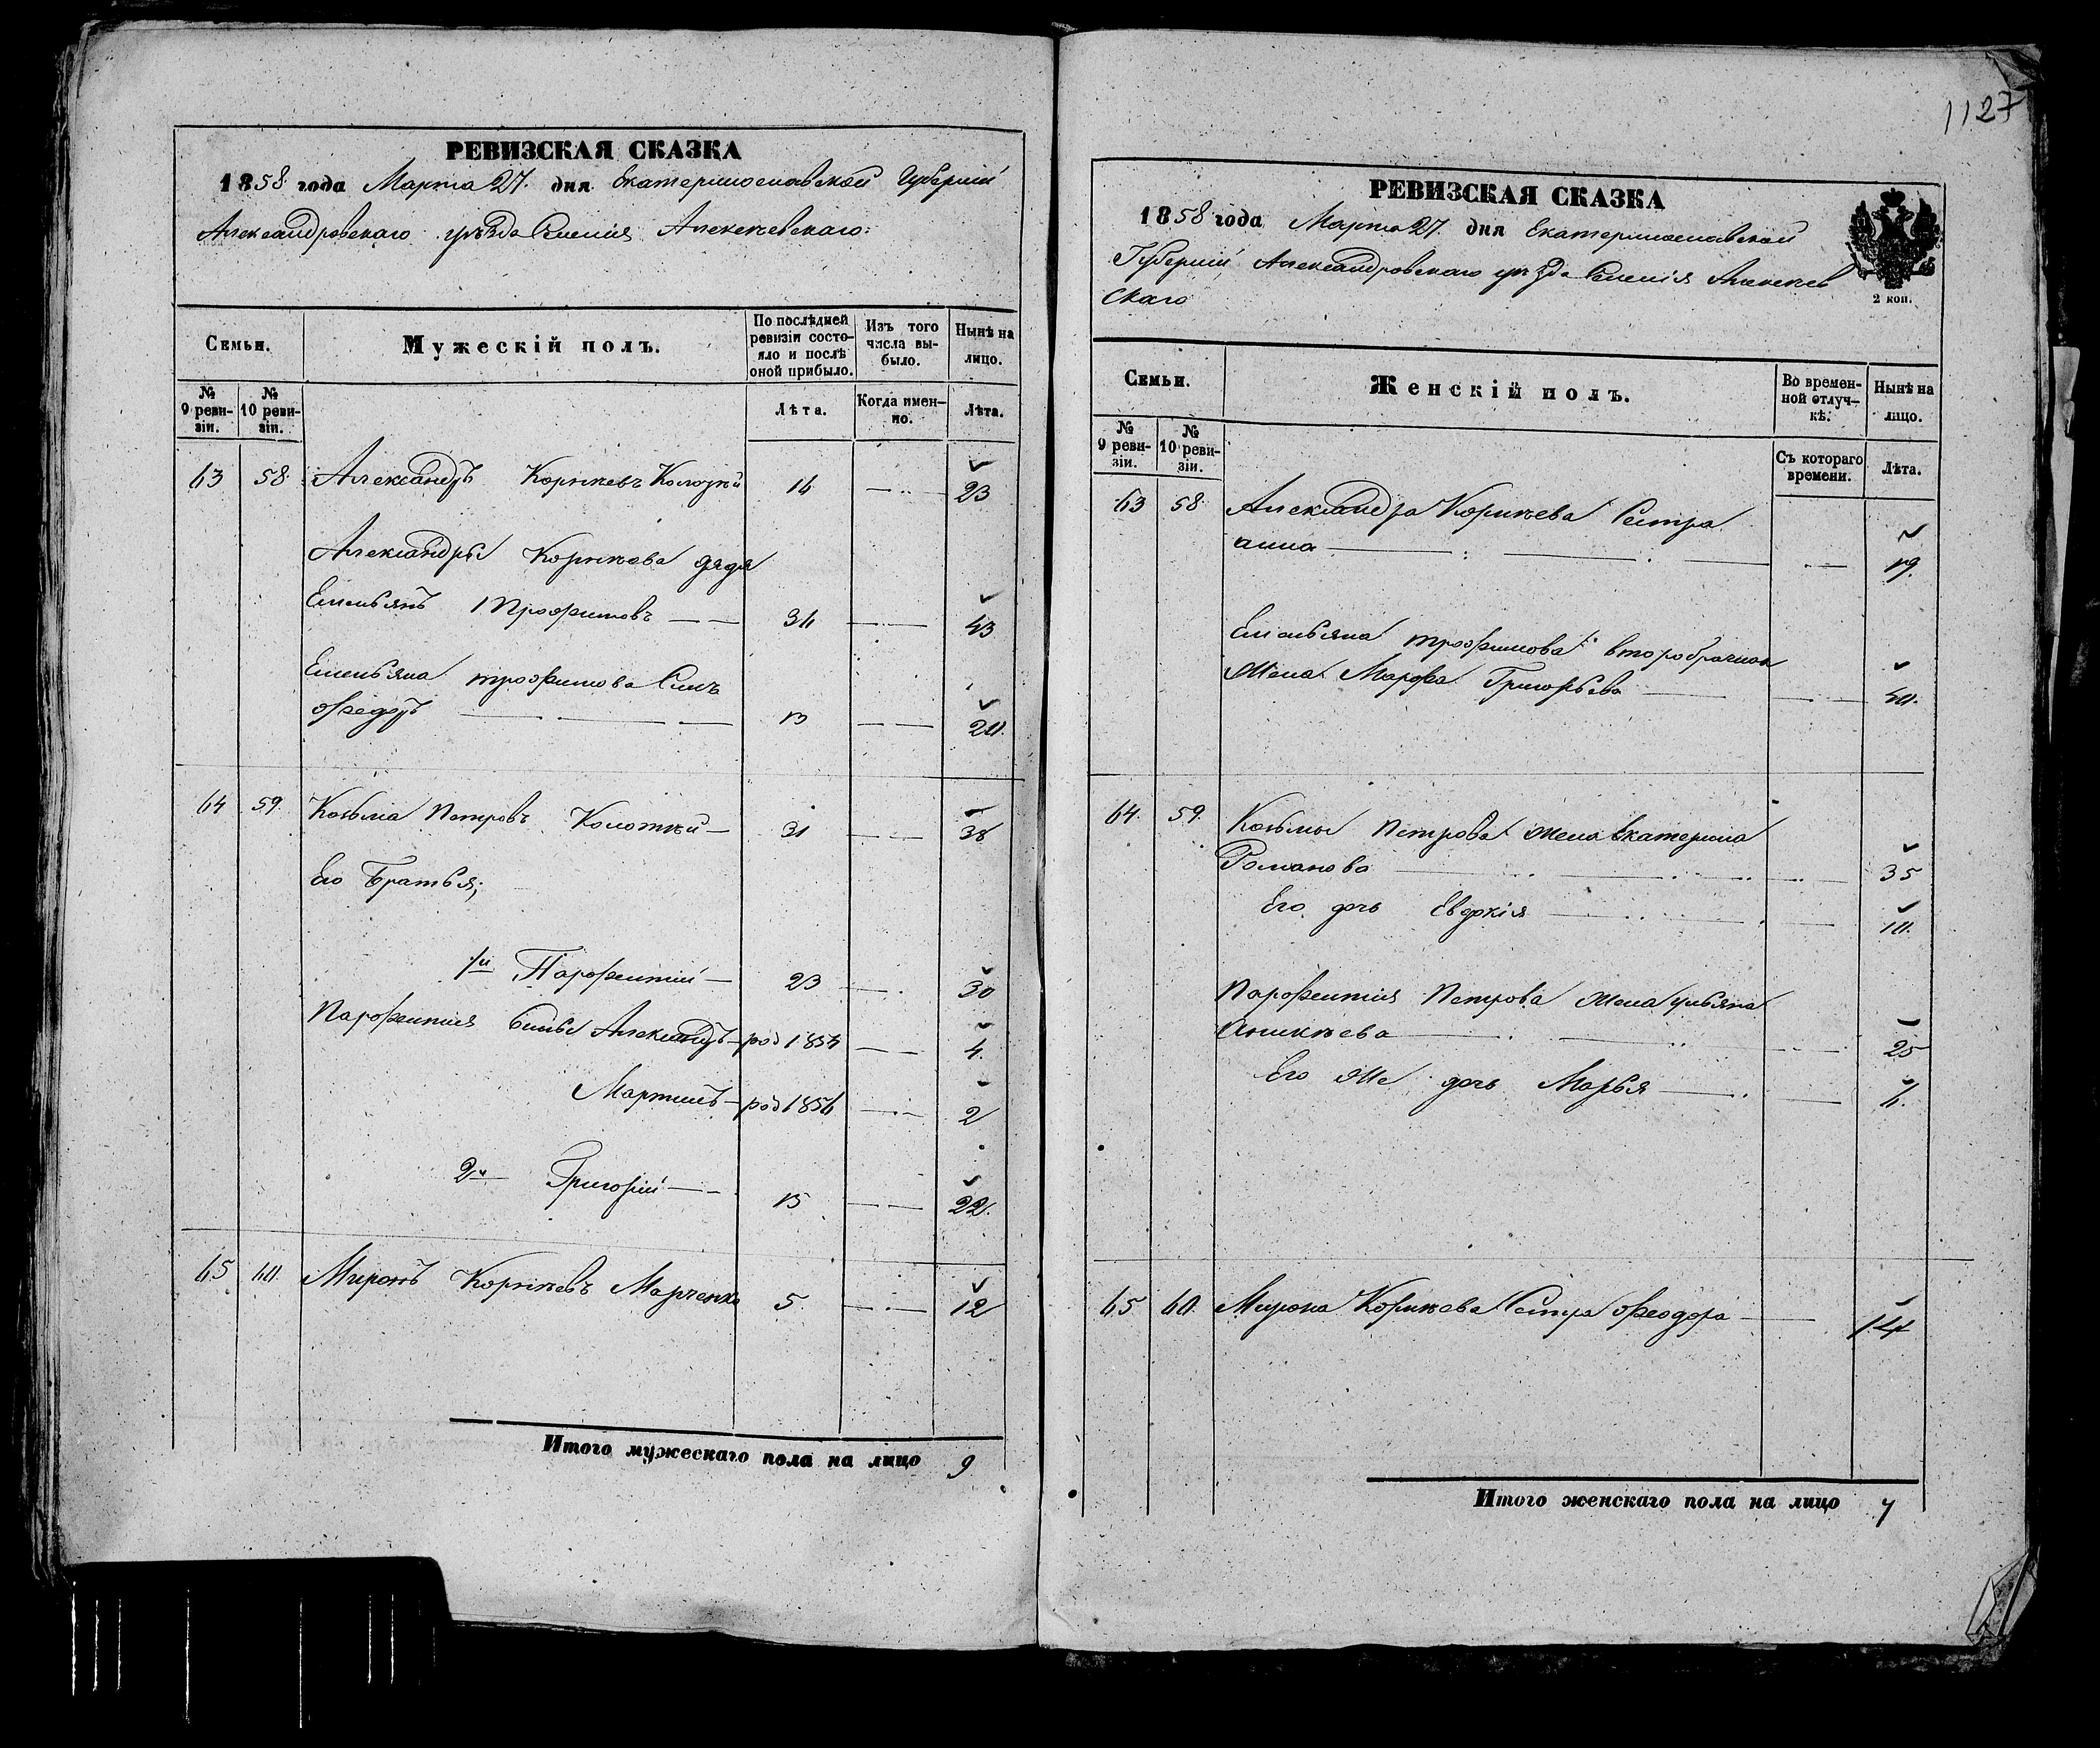 1127
РЕВИЗСКАЯ СКАЗКА
1858 года Марта 27. дня Екатеринославской Губерніи
Александровскаго уѣзда Селенія Алексѣевскаго:
Семьи.
Мужескій полъ.
По послѣдней ревизіи состояло и послѣ оной прибыло.
Изъ того числа выбыло.
Нынѣ на лицо.
№ 9 ревизіи.
№ 10 ревизіи.
Лѣта.
Когда именно.
Лѣта.
63 58 Александръ Корнѣевъ 16 23
Александра Корнѣева дядя
Емельянъ Трофимовъ 36 43
Емельяна трофимова Сынъ
Федоръ 13 20.
64 59. Козьма Петровъ 31 38
Его Братья;
1й Парфентий 23 30
Парфентия Сынъ Александръ род 1854 4.
Мартинъ род 1856 2
2й Григорій 15 22.
65 60. Миронъ Корнѣевъ Марченко 5. 12
Итого мужескаго пола на лицо 9
РЕВИЗСКАЯ СКАЗКА
1858 года Марта 27. дня Екатеринославской
Губерніи Александровскаго уѣзда Селенія Алексѣев
скаго
2 коп.
Семьи.
Женскій полъ.
Во временной отлучкѣ.
Нынѣ на лицо.
№ 9 ревизіи.
№ 10 ревизіи.
Съ котораго времени.
Лѣта.
63 58 Александра Корнѣева Сестра
анна 19.
Емельяна трофимова второбрачная
Жена Марфа Григорьева 40.
64. 59. Козьмы Петрова жена Екатерина
Романова 35
Его дочь Евдокія 10.
Парфентия Петрова жена ульяна
Аникѣева 25
Его же дочь Марья 6.
65 60. Мирона Корнѣева Сестра Феодора 14
Итого женскаго пола на лицо 7